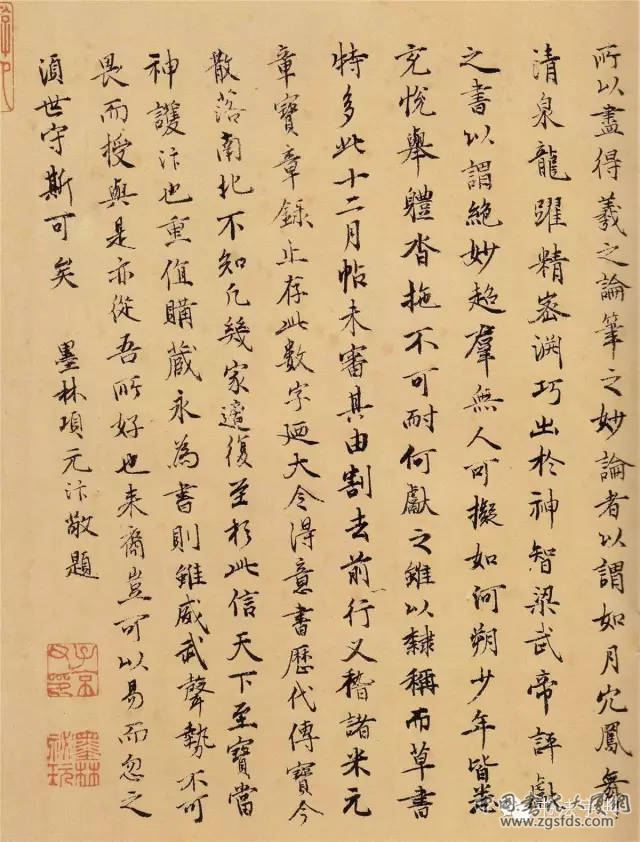 所以盡得羲之論筆之妙論者以謂如月穴鳳舞
清泉龍躍精密渊巧出於神智梁武帝評獻
之書以謂絶妙超羣無人可擬如河朔少年皆悉
充悅舉體沓拖不可耐何獻之雖以隸稱而草書
特多此十二月帖未審其由割去前行又稽諸米元
章寶章錄止存此數字廼大令得意書歷代傳寶今
散落南北不知凡幾家邅復至於此信天下至寶當
神護汴也重值購蔵永為書則雖威武聲勢不可
畏而授與是亦從吾所好也来裔豈可以易而忽之
須世守斯可矣
墨林項元汴敬題
子京
父印
墨林
祕玩
www.zgsfds.com